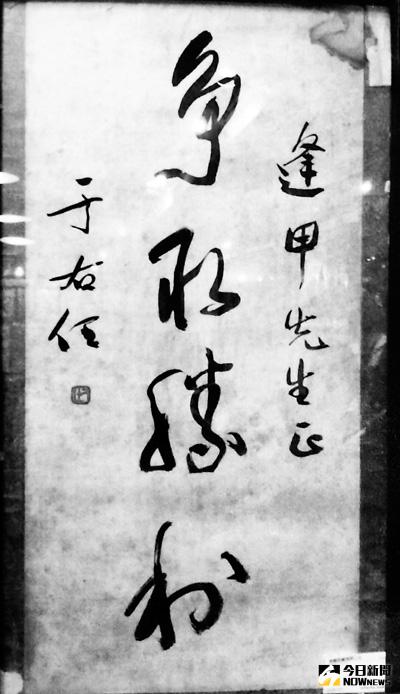 逢甲先生正
爭取勝利
于右任
今日新聞
NOWnews